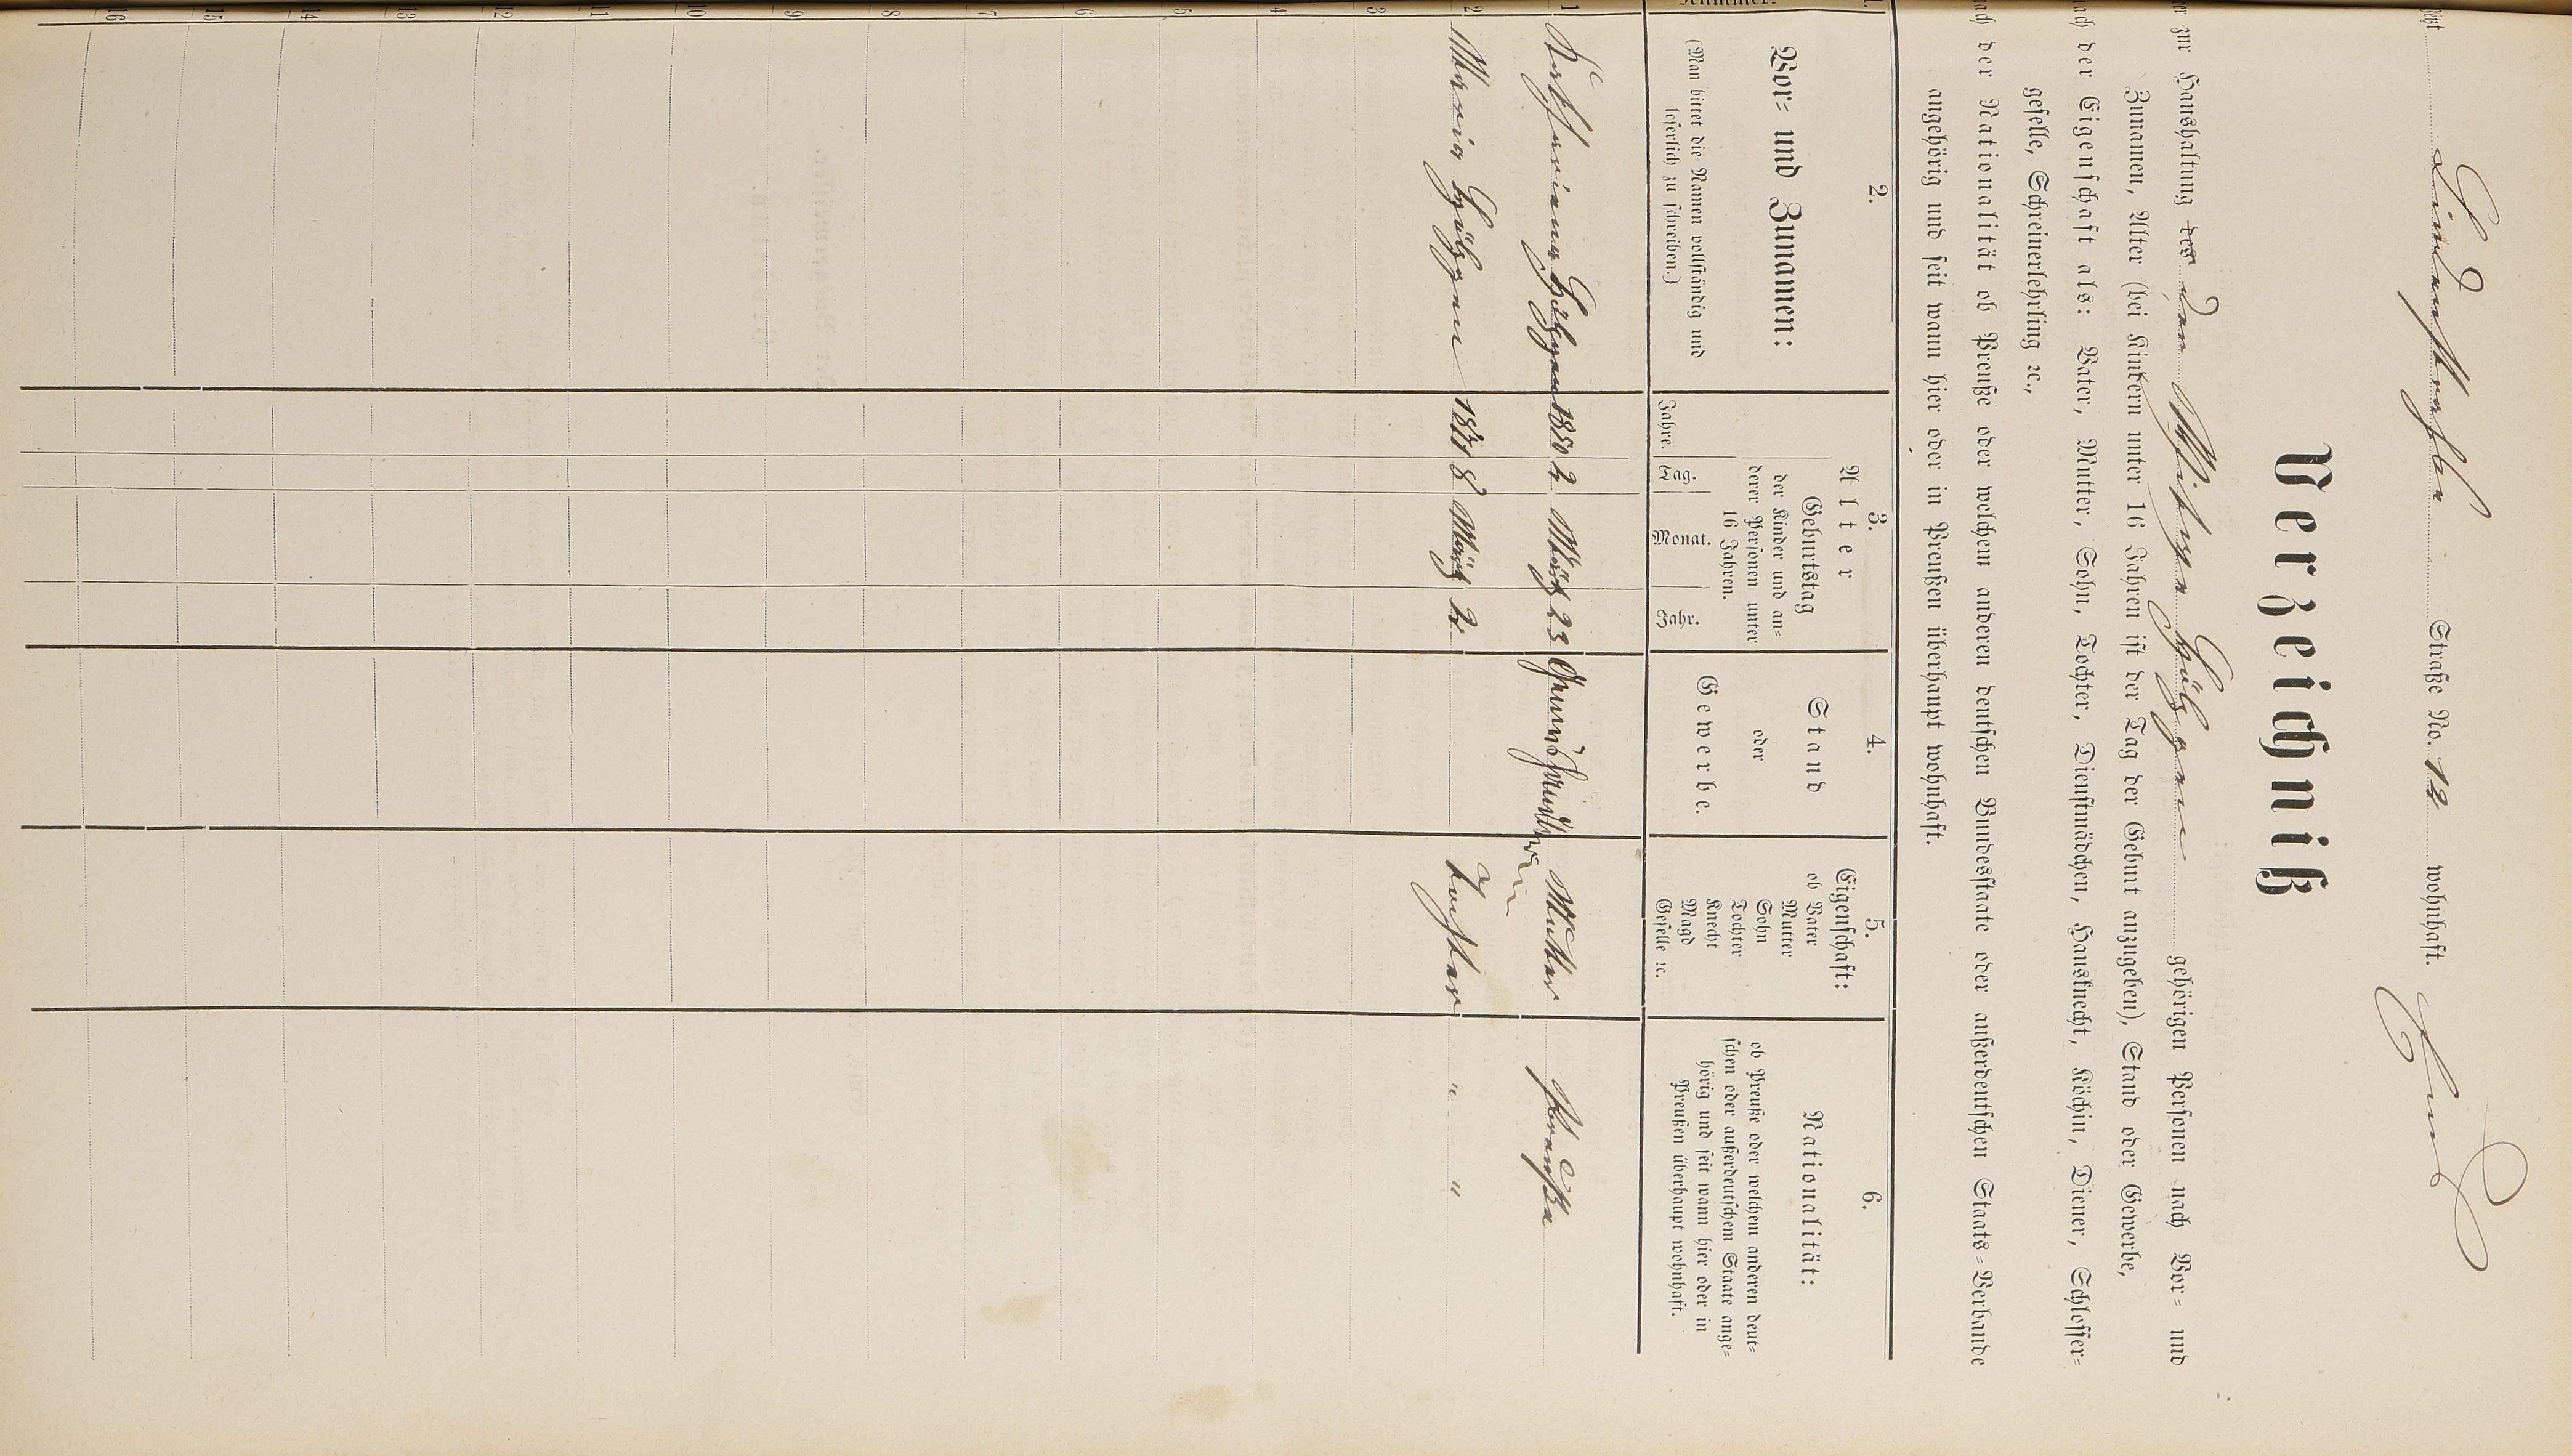 Lindenstraße Straße No. 12 wohnhaft.
Verzeichniß
zur Haushaltung des Hülzgen gehörigen Personen nach Vor= und
Zunamen, Alter (bei Kindern unter 16 Jahren ist der Tag der Geburt anzugeben), Stand oder Gewerbe,
der Eigenschaft als: Vater, Mutter, Sohn, Tochter, Dienstmädchen, Hausknecht, Köchin, Diener, Schlosser=
geselle, Schreinerlehrling ꝛc.,
der Nationalität ob Preuße oder welchem anderen deutschen Bundesstaate oder außerdeutschen Staats=Verbande
angehörig und seit wann hier oder in Preußen überhaupt wohnhaft.
1.
Nummer.
2.
Vor= und Zunamen:
(Man bittet die Namen vollständig und
leserlich zu schreiben.)
3.
Alter
Geburtstag
der Kinder und an=
derer Personen unter
16 Jahren.
Jahre. Tag. Monat. Jahr.
4.
Stand
oder
Gewerbe.
5.
Eigenschaft:
ob Vater
Mutter
Sohn
Tochter
Knecht
Magd
Geselle ꝛc.
6.
Nationalität:
ob Preuße oder welchem anderen deut=
schen oder außerdeutschem Staate ange=
hörig und seit wann hier oder in
Preußen überhaupt wohnhaft.
1 Katharina Hülzgen 2 März 23 Mutter Preuße
2 Maria Hülzgen 8 März 2 Tochter " "
3
4
5
6
7
8
9
10
11
12
13
14
15
16